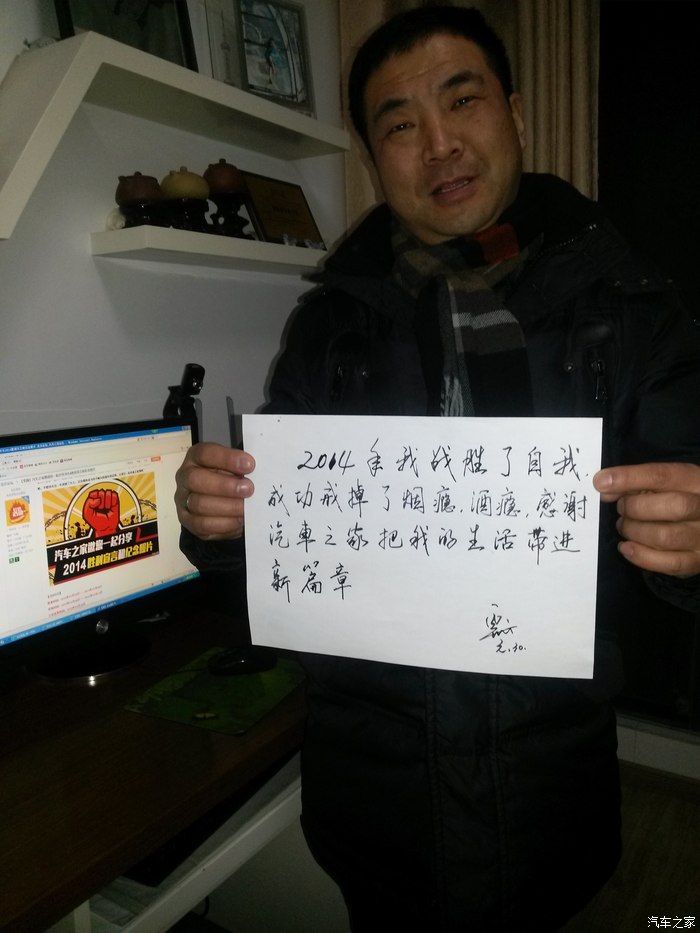 汽车之家微旅一起分享
2014胜利宣言和纪念照片
2014年我战胜了自我.
成功戒掉了烟瘾.酒瘾.感谢
汽車之家把我的生活带进
新篇章
元.30.
汽车之家